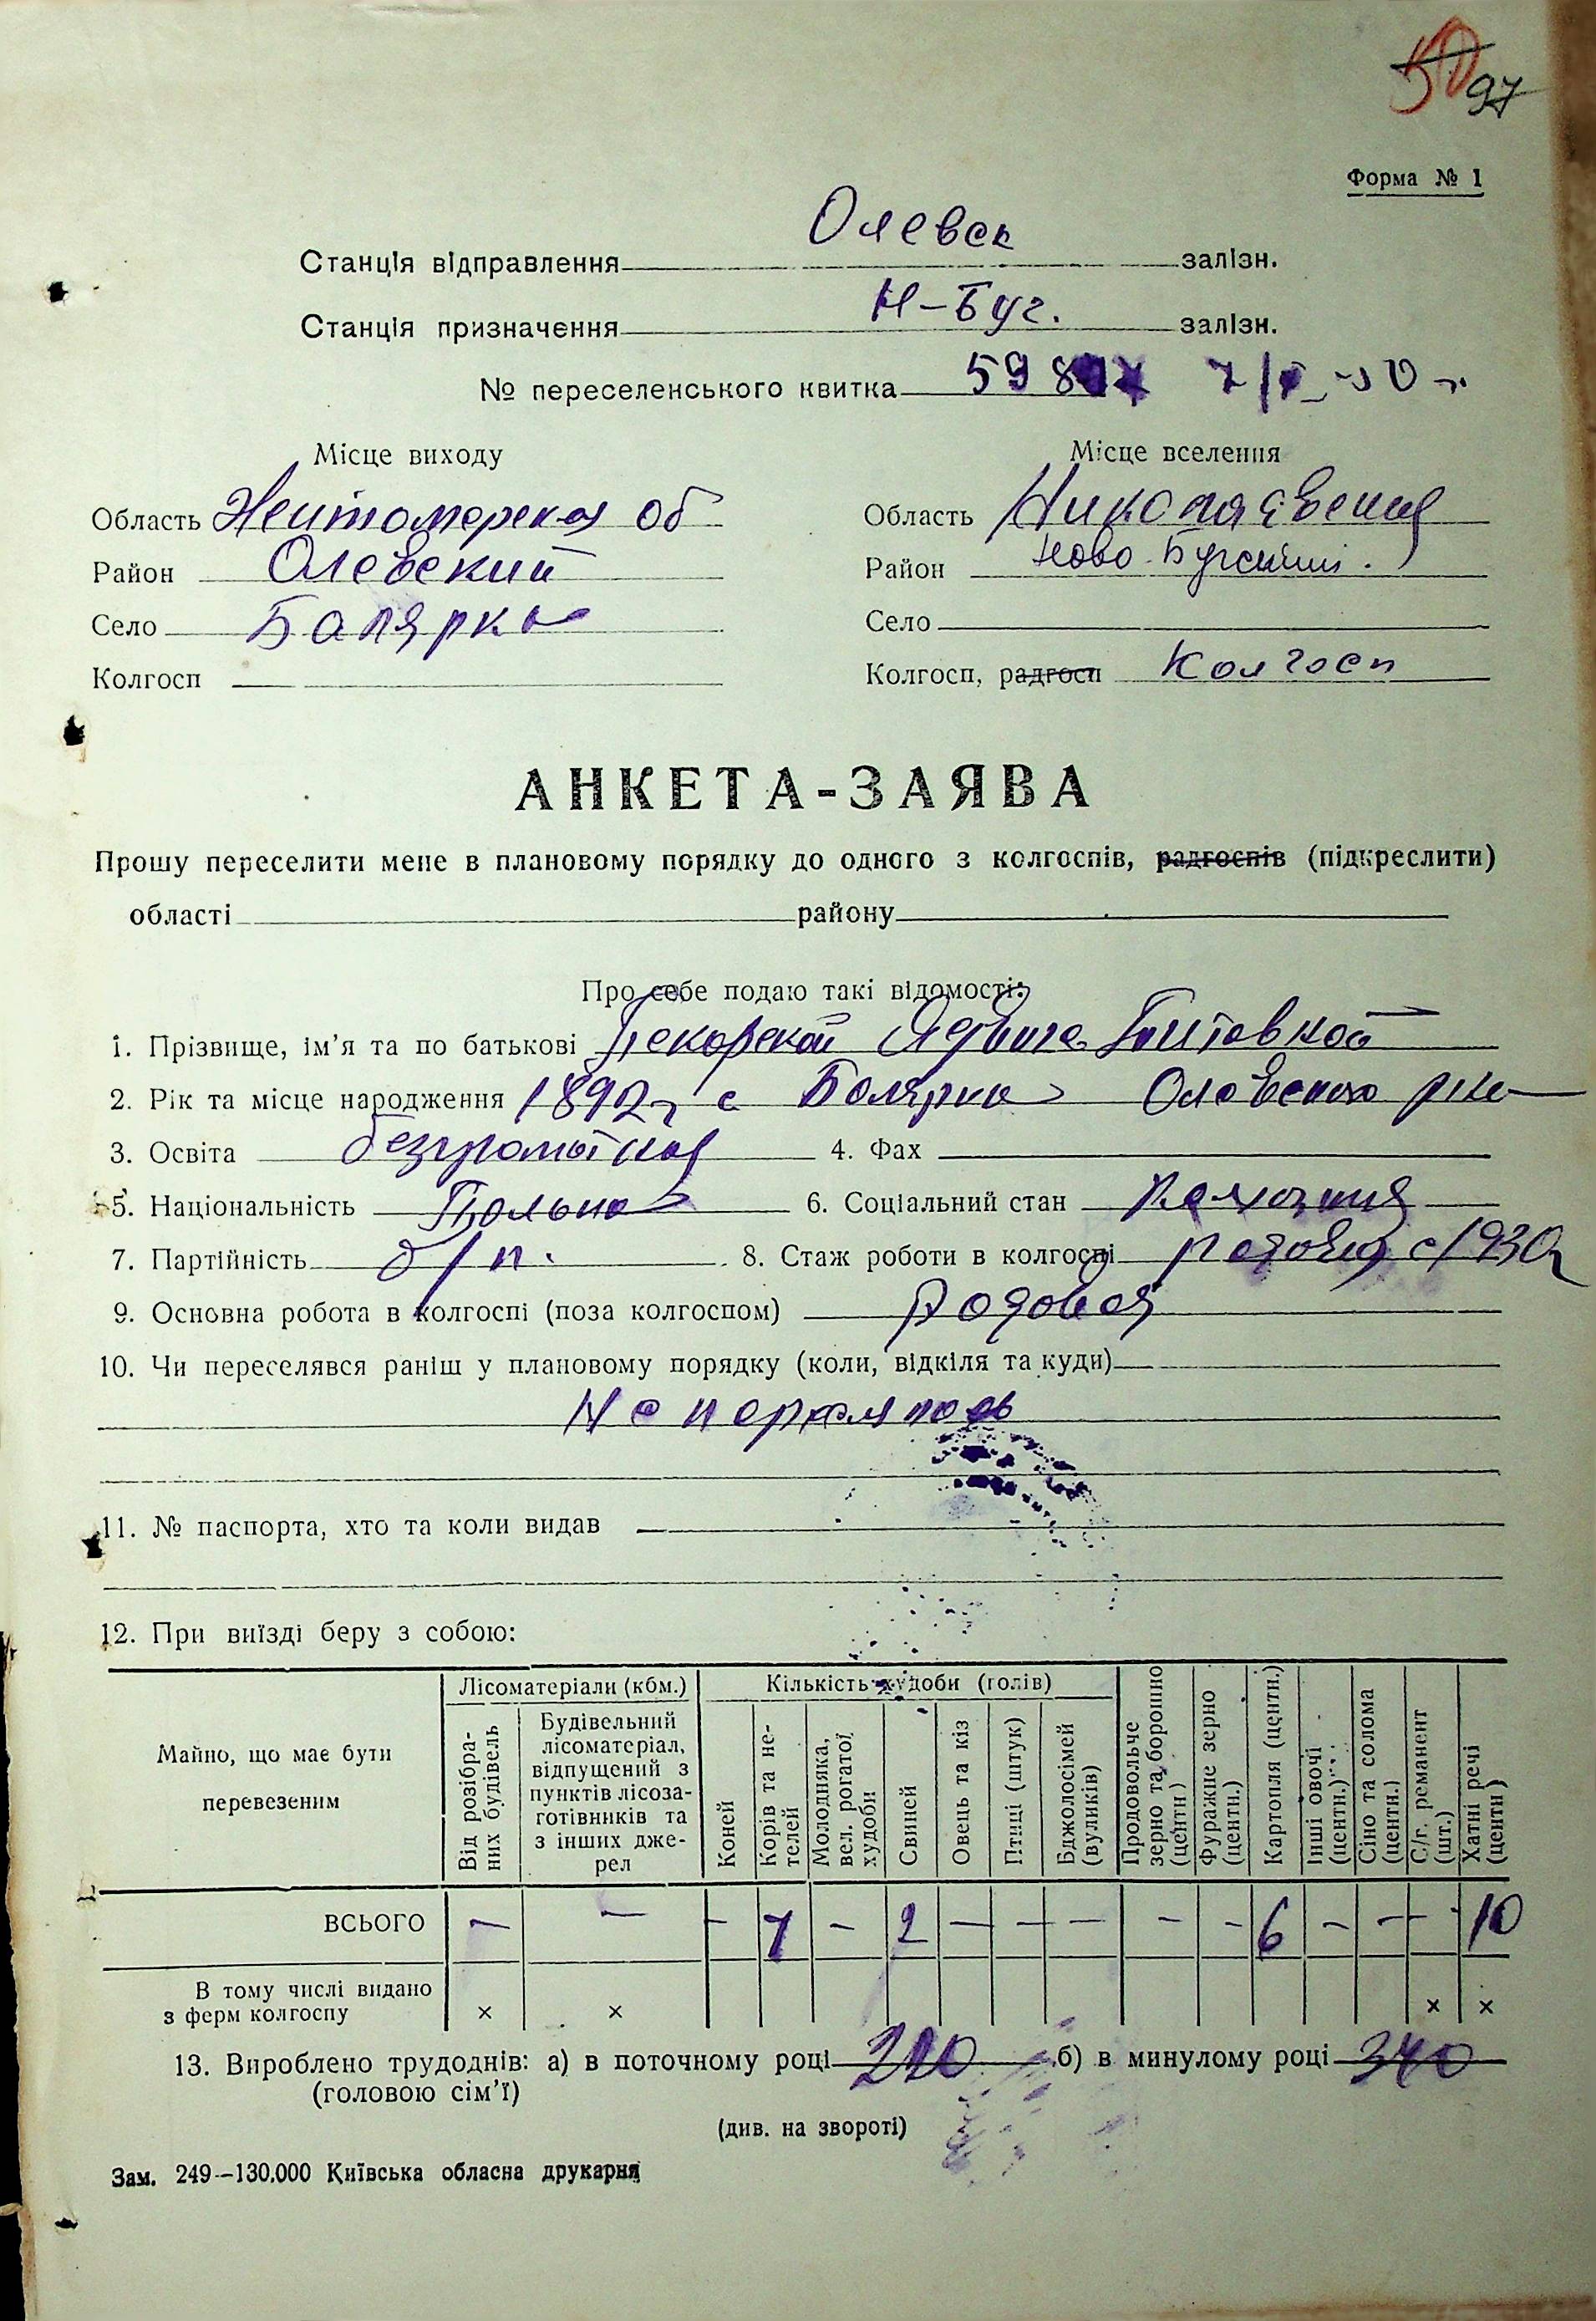 50 97
Форма № 1
Станція відправлення Олевск залізн.
Станція призначення Н-Буг. залізн.
№ переселенського квитка 598
Місце виходу Місце вселення
Область Житомерская об Область Николаевская
Район Олевский Район Ново-Бугский.
Село Балярка Село
Колгосп Колгосп, радгосп Колгосп
АНКЕТА-ЗАЯВА
Прошу переселити мене в плановому порядку до одного з колгоспів, радгоспів (підкреслити)
області району
Про себе подаю такі відомості:
1. Прізвище, ім’я та по батькові
2. Рік та місце народження 1892 г с Болярка Олевского р-на
3. Освіта безграмотная 4. Фах
5. Національність Полька 6. Соціальний стан Колхозница
7. Партійність б/п. 8. Стаж роботи в колгоспі рядовая с 1930г
9. Основна робота в колгоспі (поза колгоспом) Рядовая
10. Чи переселявся раніш у плановому порядку (коли, відкіля та куди)
Не
11. № паспорта, хто та коли видав
12. При виїзді беру з собою:
Майно, що має бути перевезеним
Лісоматеріали (кбм.) Кількість худоби (голів)
Від розібраних будівель
Будівельний лісоматеріал, відпущений з пунктів лісозаготівників та з інших джерел
Коней
Корів та нетелей
Молодняка, вел. рогатої худоби
Свиней
Овець та кіз
Птиці (штук)
Бджолосімей (вуликів)
Продовольче зерно та борошно (центн)
Фуражне зерно (центн.)
Картопля (центн.)
Інші овочі (центн.)
Сіно та солома (центн.)
С/г. реманент (шт.)
Хатні речі (центн)
ВСЬОГО — — — 1 — 2 — — — — — 6 — — — 10
В тому числі видано з ферм колгоспу × × × ×
13. Вироблено трудоднів: а) в поточному році 210 б) в минулому році 340
(головою сім’ї)
(див. на звороті)
Зам. 249—130.000 Київська обласна друкарня